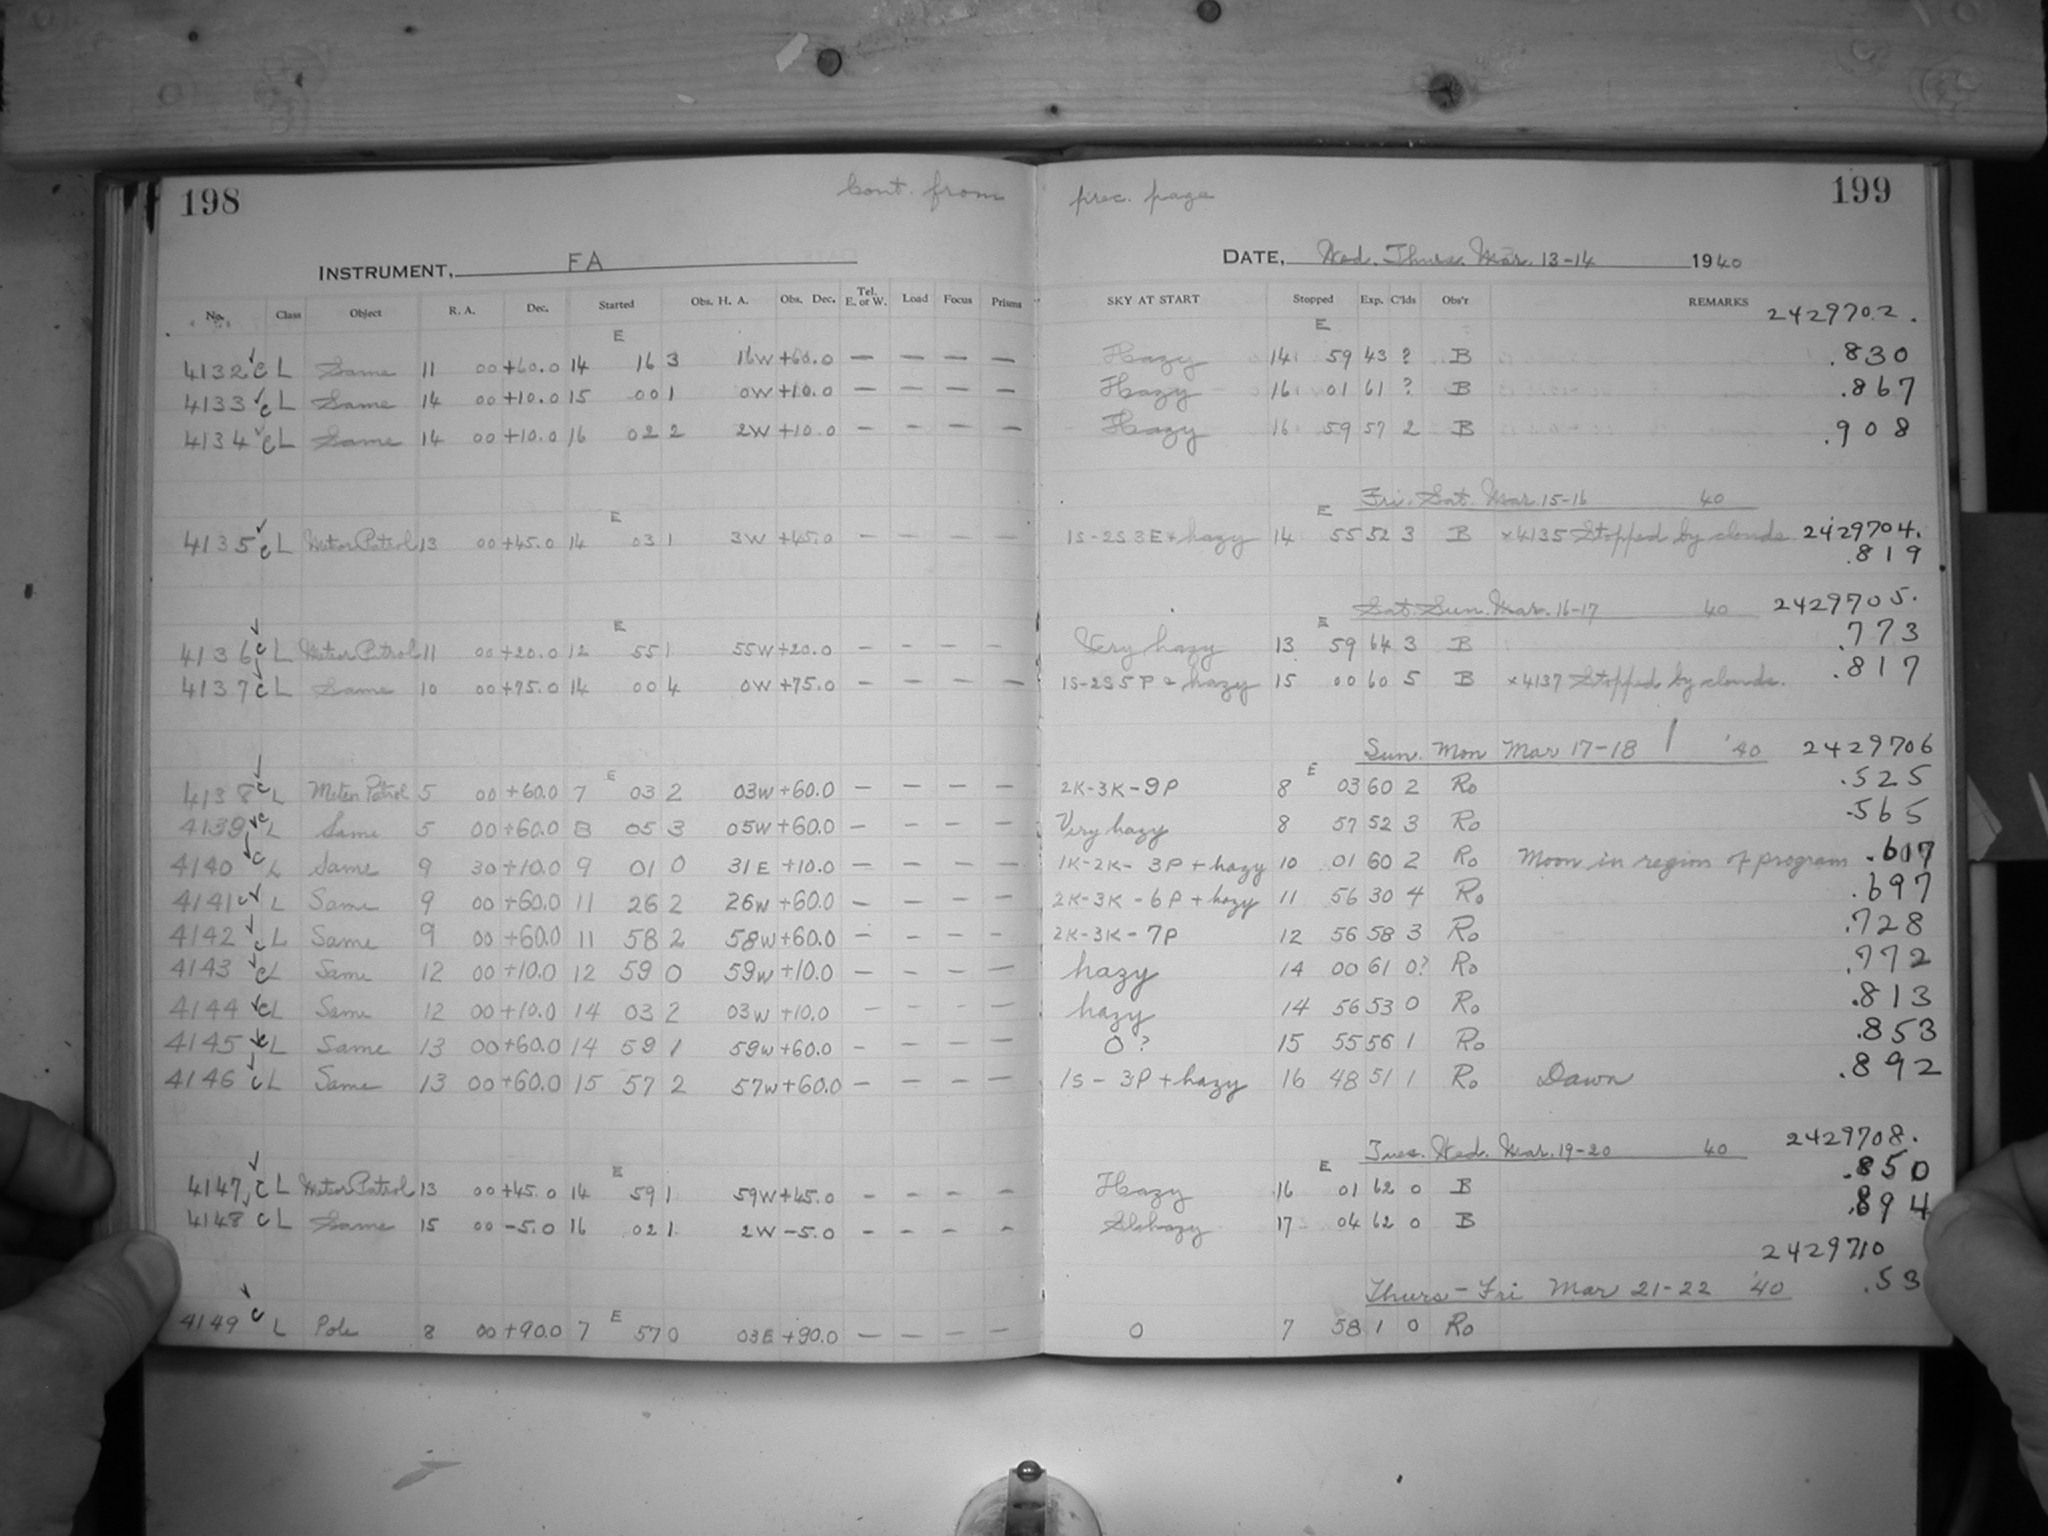 198 Cont. from prec. page 199
INSTRUMENT, FA DATE, Wed. Thurs. Mar. 13-14 1940
No. Class Object R. A. Dec. Started Obs. H. A. Obs. Dec. Tel. E. or W. Load Focus Prisms SKY AT START Stopped Exp. C'lds Obs'r REMARKS 2429702.
E E
4132 c L Same 11 00 +60.0 14 16 3 16W +60.0 — — — — Hazy 14 59 43 ? B .830
4133 c L Same 14 00 +10.0 15 00 1 0W +10.0 — — — — Hazy 16 01 61 ? B .867
4134 c L Same 14 00 +10.0 16 02 2 2W +10.0 — — — — Hazy 16 59 57 2 B .908
Fri. Sat. Mar. 15-16 40
E E
4135 c L Meteor Patrol 13 00 +45.0 14 03 1 3W +45.0 — — — — 1S-2S3E+hazy 14 55 52 3 B ×4135 Stopped by clouds 2429704.
.819
Sat. Sun. Mar. 16-17 40 2429705.
E E
4136 c L Meteor Patrol 11 00 +20.0 12 55 1 55W +20.0 — — — — Very hazy 13 59 64 3 B .773
4137 c L Same 10 00 +75.0 14 00 4 0W +75.0 — — — — 1S-2S5P + hazy 15 00 60 5 B ×4137 Stopped by clouds. .817
Sun. Mon Mar 17-18 '40 2429706
E E
4138 c L Meteor Patrol 5 00 +60.0 7 03 2 03W +60.0 — — — — 2K-3K-9P 8 03 60 2 Ro .525
4139 c L Same 5 00 +60.0 8 05 3 05W +60.0 — — — — Very hazy 8 57 52 3 Ro .565
4140 c L Same 9 30 +10.0 9 01 0 31E +10.0 — — — — 1K-2K-3P + hazy 10 01 60 2 Ro Moon in region of program .607
4141 c L Same 9 00 +60.0 11 26 2 26W +60.0 — — — — 2K-3K-6P + hazy 11 56 30 4 Ro .697
4142 c L Same 9 00 +60.0 11 58 2 58W +60.0 — — — — 2K-3K-7P 12 56 58 3 Ro .728
4143 c L Same 12 00 +10.0 12 59 0 59W +10.0 — — — — hazy 14 00 61 0? Ro .772
4144 c L Same 12 00 +10.0 14 03 2 03W +10.0 — — — — hazy 14 56 53 0 Ro .813
4145 c L Same 13 00 +60.0 14 59 1 59W +60.0 — — — — 0 ? 15 55 56 1 Ro .853
4146 c L Same 13 00 +60.0 15 57 2 57W +60.0 — — — — 1S-3P + hazy 16 48 51 1 Ro Dawn .892
Tues. Wed. Mar. 19-20 40 2429708.
E E
4147 c L Meteor Patrol 13 00 +45.0 14 59 1 59W +45.0 — — — — Hazy 16 01 62 0 B .850
4148 c L Same 15 00 -5.0 16 02 1 2W -5.0 — — — — Sl. hazy 17 04 62 0 B .894
2429710
Thurs - Fri Mar 21-22 '40 .53
E
4149 c L Pole 8 00 +90.0 7 57 0 03E +90.0 — — — — 0 7 58 1 0 Ro